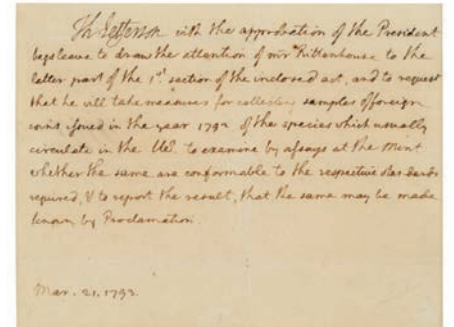 Th Jefferson with the approbation of the President
begs leave to draw the attention of mr Rittenhouse to the
latter part of the 1st section of the inclosed act, and to request
that he will take measures for collecting samples of foreign
coins issued in the year 1792 of the species which usually
circulate in the US. to examine by assays at the Mint
whether the same are conformable to the respective standards
required, & to report the result, that the same may be made
known by Proclamation.
Mar. 21. 1793.